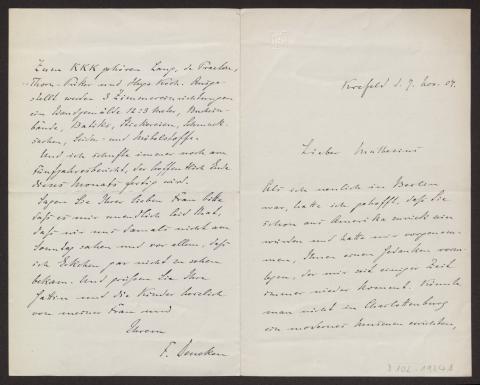 Zum KKK gehören Lang, de Praetere,
Thorn-Prikker und Hugo Koch. Ausge-
stellt werden 3 Zimmereinrichtungen
ein Wandgemälde 12:3 Meter, Buchein-
bände, Batiks, Stickereien, Schmuck-
sachen, Licht- und Möbelstoffe.
Und ich schufte immer noch am
Fünfjahresbericht, der hoffentlich Ende
dieses Monats fertig wird.
Sagen Sie Ihrer lieben Frau bitte
daß es mir unendlich leid that,
daß wir uns damals nicht am
Sonntag sahen und vor allem, daß
ich Eckchen gar nicht zu sehen
bekam. Und grüßen Sie Ihre
Gattin und die Kinder herzlich
von meiner Frau und
Ihrem
F. Deneken
Krefeld d. 7. Nov. 04.
Lieber Muthesius
Als ich neulich in Berlin
war, hatte ich gehofft, daß Sie
schon aus Amerika zurück sein
würden und hatte mir vorgenom-
men, Ihnen einen Gedanken vorzu-
legen, der mir seit einiger Zeit
immer wieder kommt. Könnte
man nicht in Charlottenburg
ein modernes Museum errichten,
D 102 - 1924